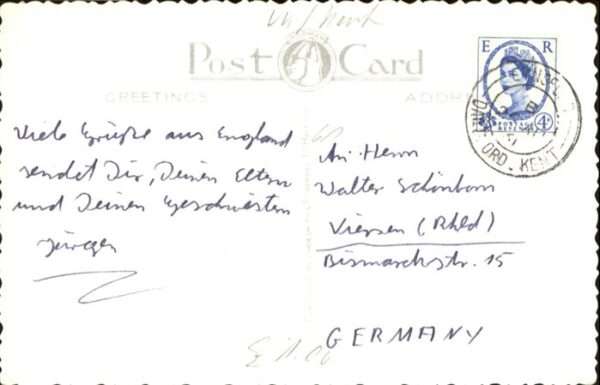 Post Card
GREETINGS
ADDRESS
E R
POSTAGE
REVENUE
4D
ORD. KENT
Viele Grüße aus England
sendet Dir, Deinen Eltern
und Deinen Geschwistern
Jürgen
An Herrn
Walter Schönborn
Viersen (Rhld)
Bismarckstr. 15
GERMANY